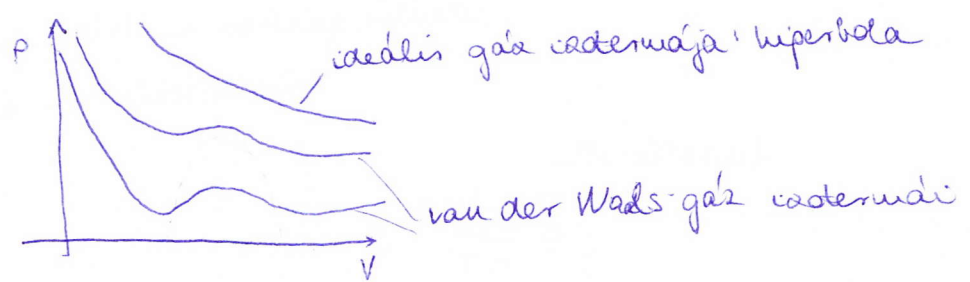 P
ideális gáz izotermája: hiperbola
van der Waals-gáz izotermái
V